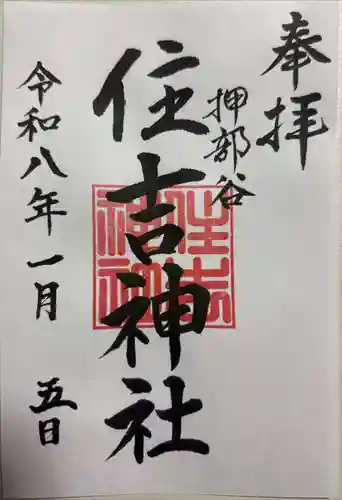 奉拝
押部谷
住吉神社
住吉神社
令和八年一月五日